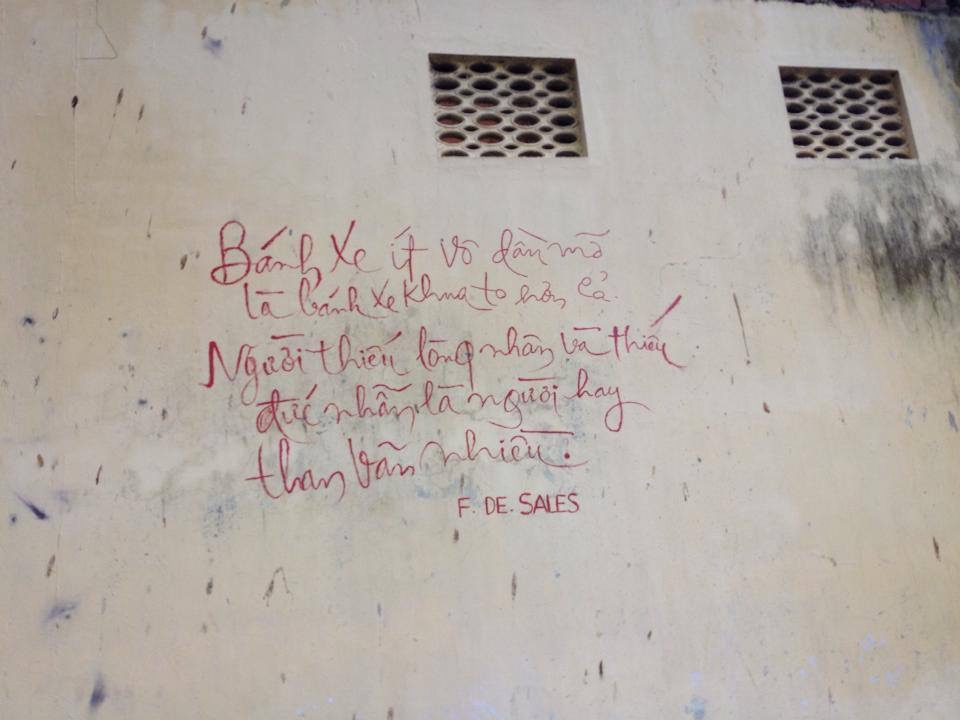 Bánh xe ít vô dầu mỡ
là bánh xe khua to hơn cả.
Người thiếu lòng nhân và thiếu
đức nhẫn, là người hay
than vãn nhiều.
F. DE. SALES